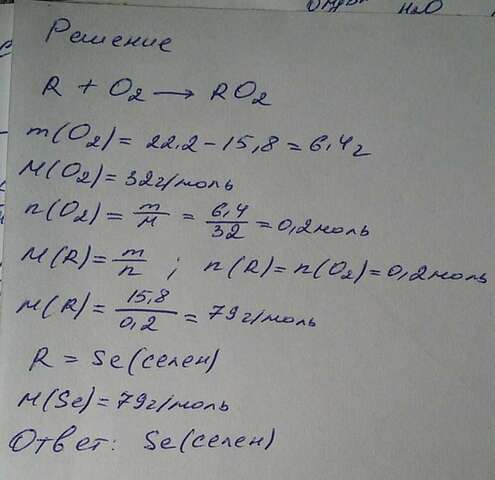 H2O
Решение
R + O2 → RO2
m(O2) = 22,2 - 15,8 = 6,4г
M(O2) = 32г/моль
n(O2) = m/M = 6,4/32 = 0,2моль
M(R) = m/n ; n(R) = n(O2) = 0,2моль
M(R) = 15,8/0,2 = 79г/моль
R = Se(селен)
M(Se) = 79г/моль
Ответ: Se(селен)